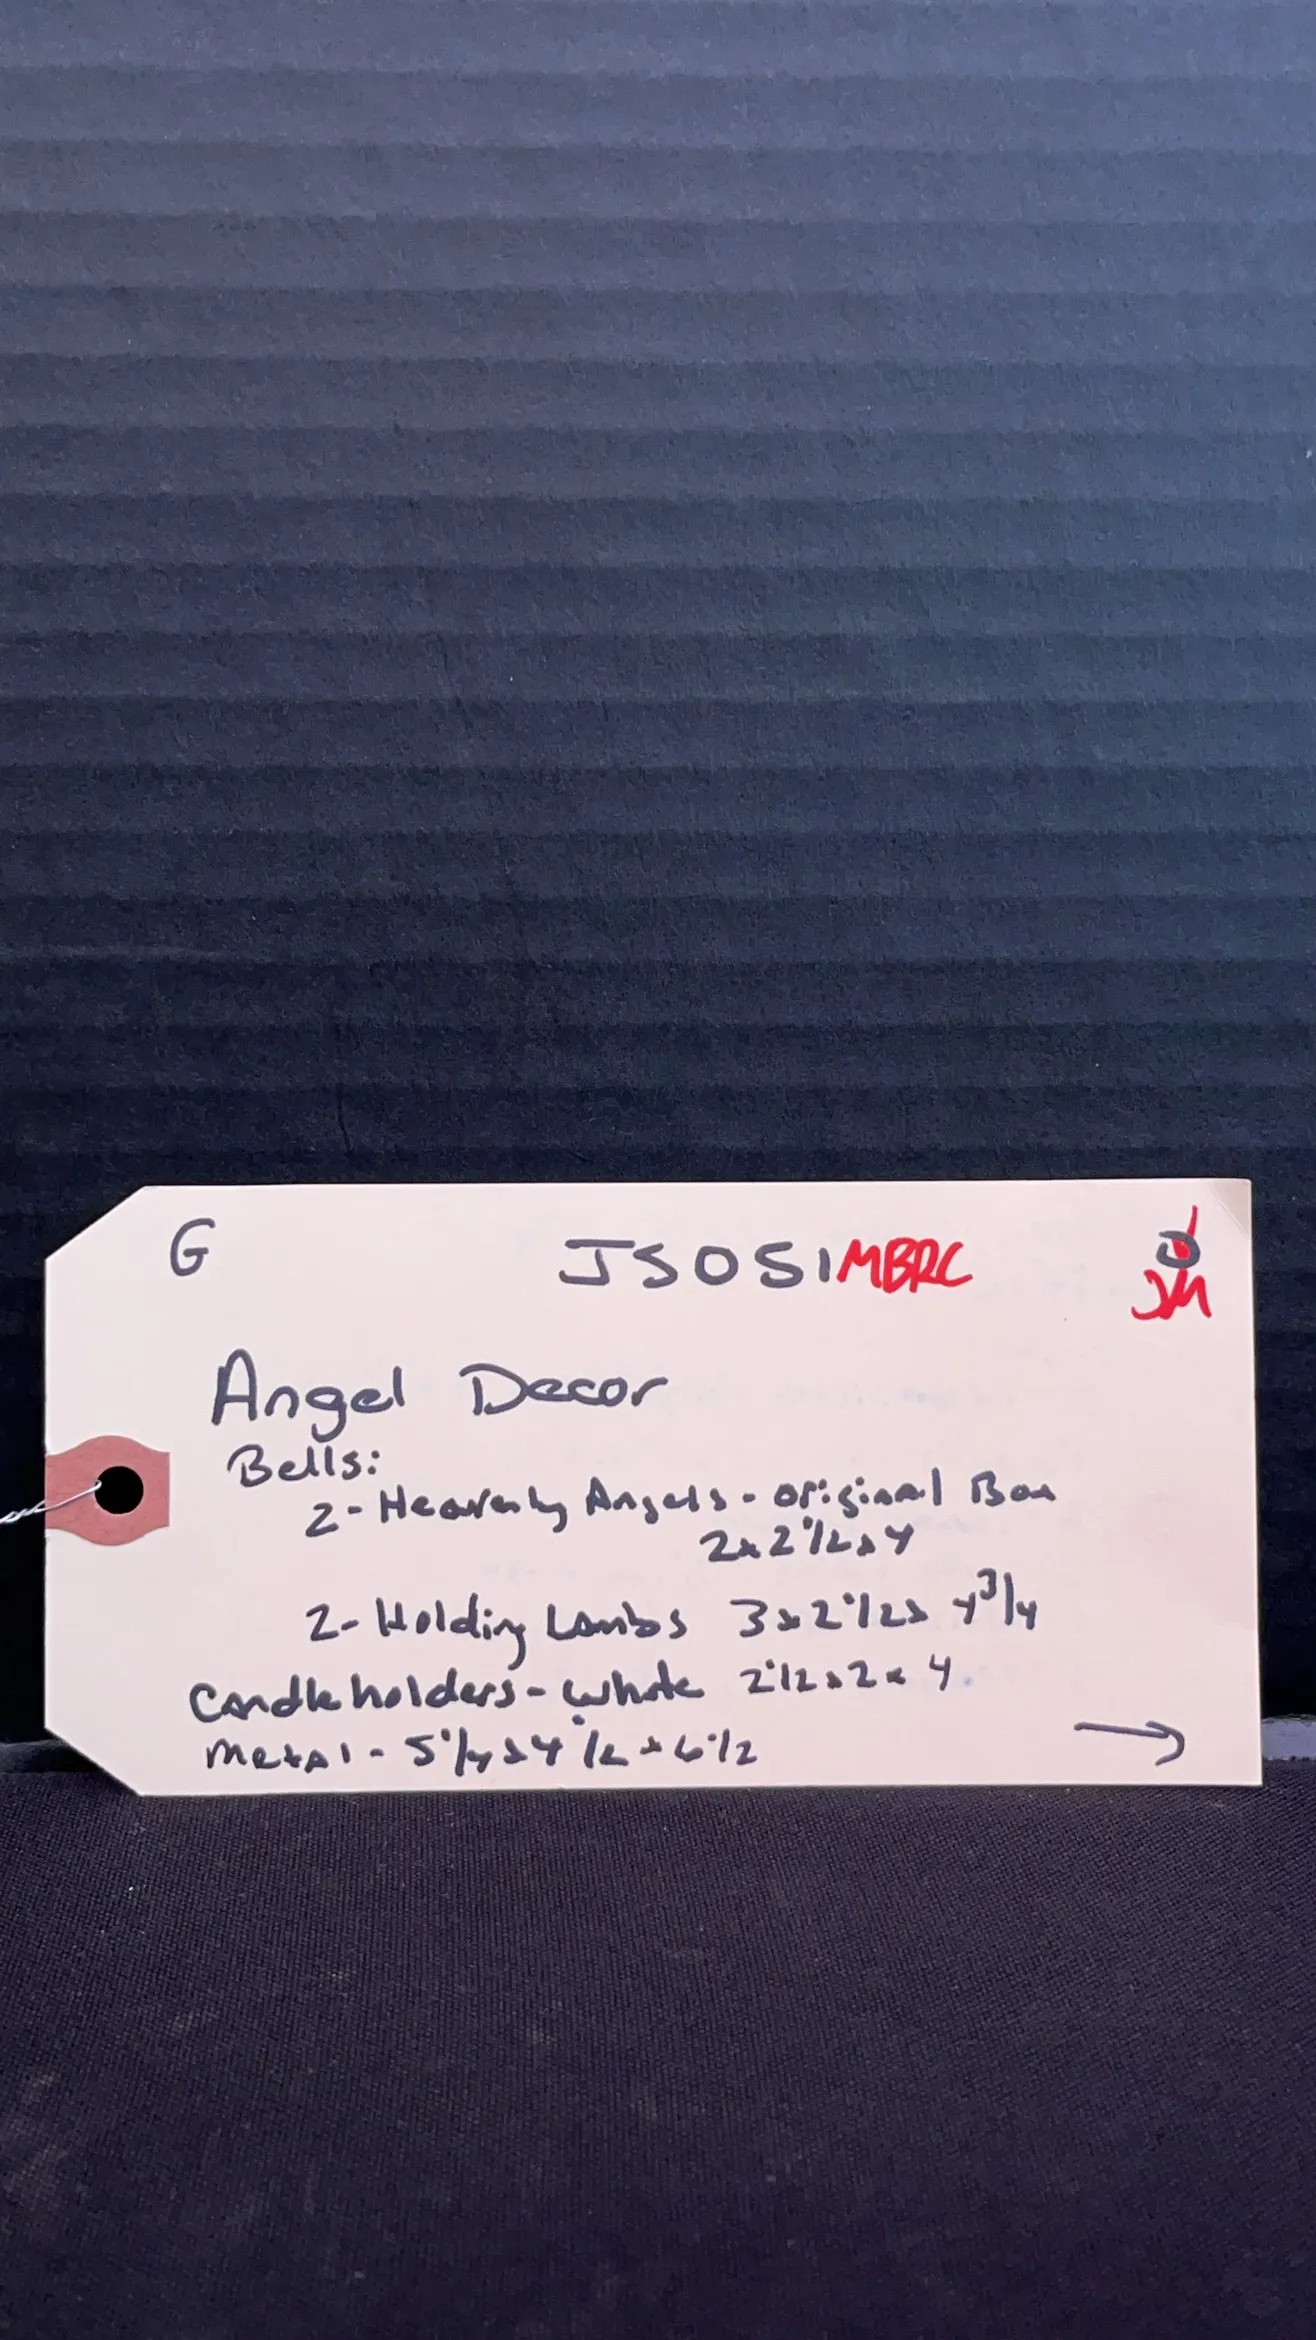 G JS051MBRC D
JM
Angel Decor
Bells:
2- Heavenly Angels - original Box
2x2 1/2x4
2- Holding Lambs 3x2 1/2x 4 3/4
Candleholders - white 2 1/2x2x4
metal - 5 1/4x4 1/2x6 1/2
→